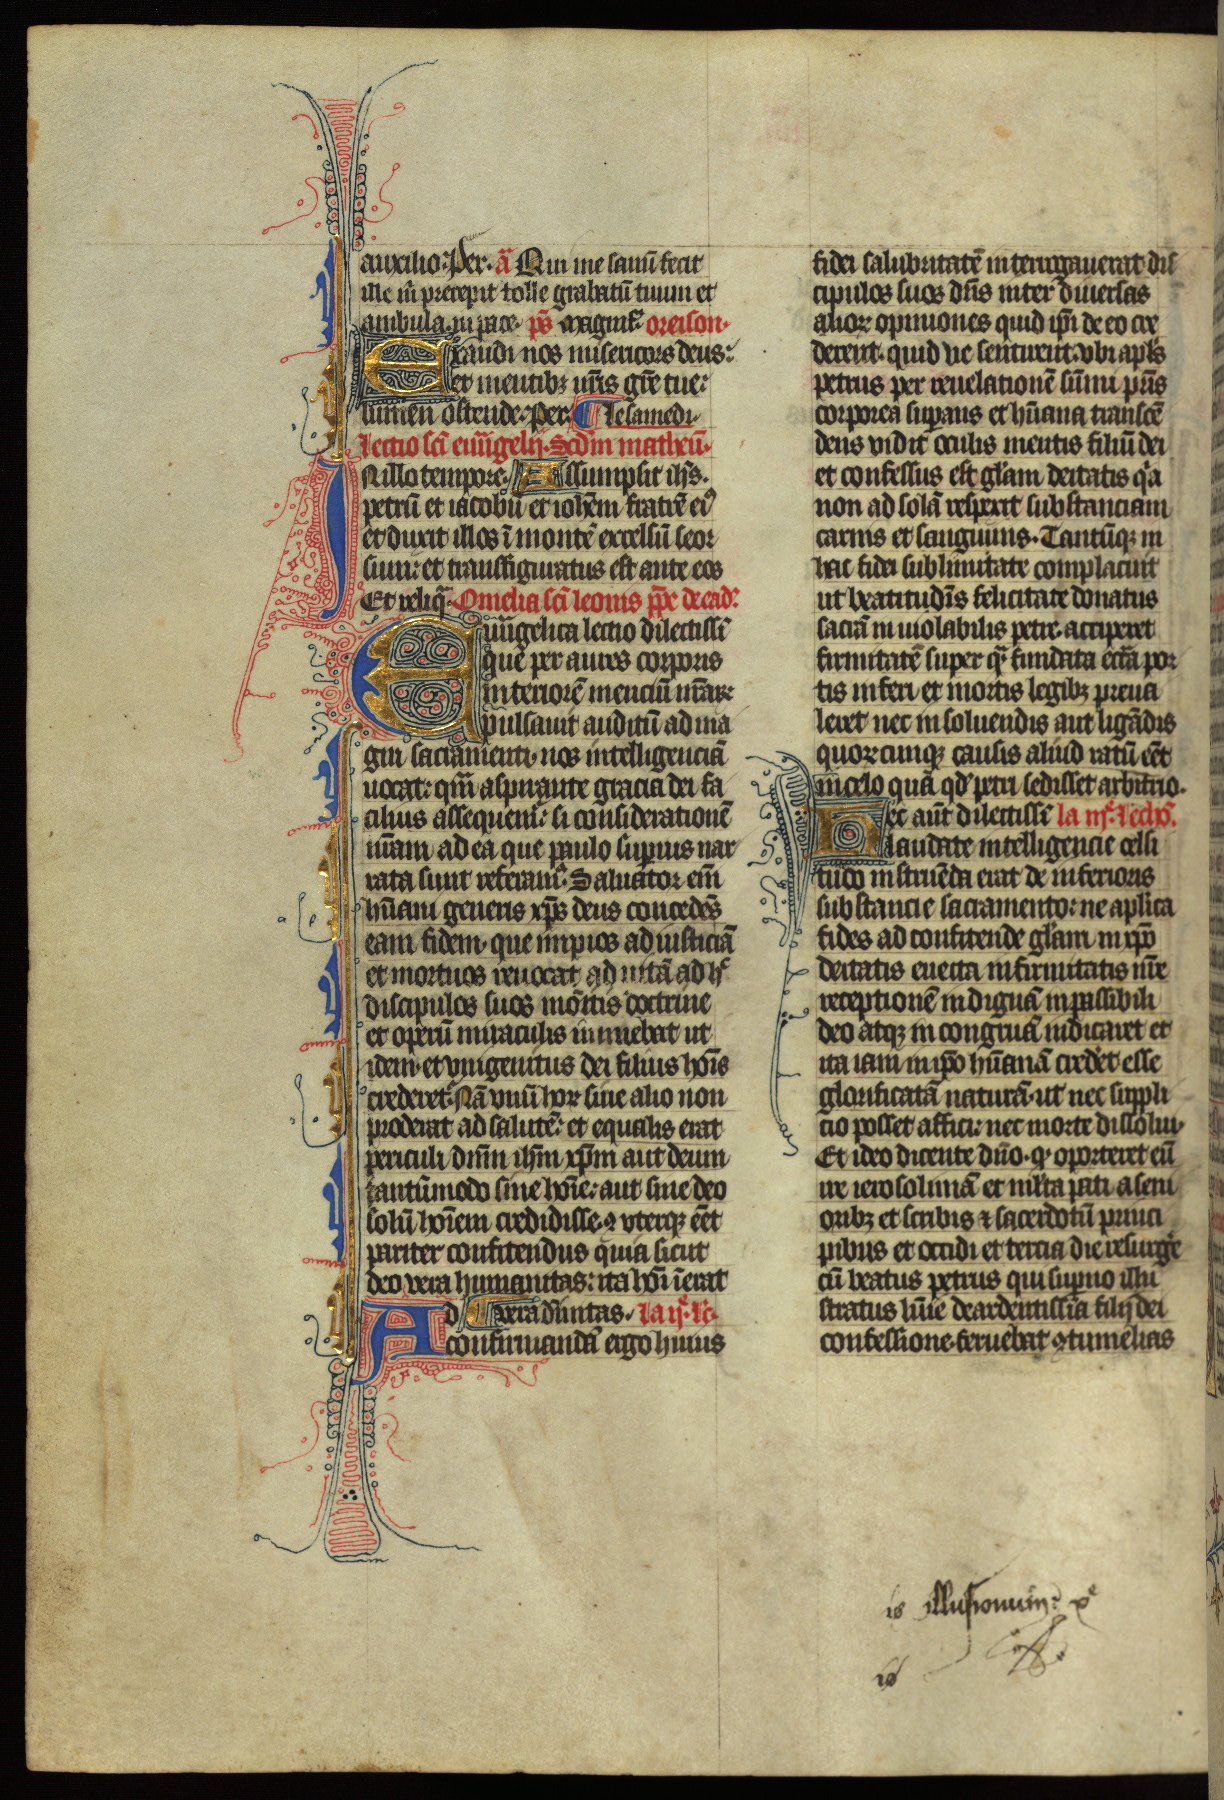 auxilio. Per. a̅ Qui me sanu̅ fecit
ille m̅ precepit tolle grabatu̅ tuum et
ambula in pace. ps̅ magnif̅. oreison.
Exaudi nos misericors deus:
et mentib; nr̅is gr̅e tue:
lumen ostende. Per. Le samedi.
lectio sc̅i euu̅gelij. Scd̅m matheu̅.
In illo tempore. Assumpsit ih̅s.
petru̅ et iacobu̅ et ioh̅em fratre̅ ei⁹
et duxit illos i̅ monte̅ excelsu̅ seor
sum: et transfiguratus est ante eos
Et reliq̅. Omelia sc̅i leonis pp̅e de ead̅.
Euu̅gelica lectio dilectissi̅
que̅ per aures corporis
interiore̅ menciu̅ nr̅aꝝ
pulsauit auditu̅ ad ma
gni sacramenti. nos intelligencia̅
uocat: qm̅ aspirante gracia dei fa
cilius assequem̅: si consideratione̅
nr̅am ad ea que paulo superius nar
rata sunt referam̅. Saluator em̅
hu̅ani generis xp̅s deus concede̅s
eam fidem. que impios ad iusticia̅
et mortuos reuocat ad uita̅ ad h̅
discipulos suos mo̅itis doctrine
et operu̅ miraculis inmuebat ut
idem et vnigenitus dei filius ho̅is
crederet̅. Na̅ vnu̅ hoꝝ sine alio non
proderat ad salute̅: et equalis erat
periculi dn̅m ih̅m xp̅m aut deum
tantu̅modo sine ho̅ie: aut sine deo
solu̅ ho̅iem credidisse. ꝯ vterq; ee̅t
pariter confitendus quia sicut
deo vera humanitas: ita ho̅i i̅erat
vera diuinitas. la ij̅. lc̅.
Ad confirmanda̅ ergo huius
fidei salubritate̅ interrogauerat dis
cipulos suos dn̅s inter diuersas
alioꝝ opiniones quid ip̅i de eo cre
derent. quid ue sentirent. vbi apl̅s
petrus per reuelatione̅ su̅mi pr̅is
corporea superans et hu̅ana transce̅
dens vidit oculis mentis filiu̅ dei
et confessus est gl̅am deitatis q̅a
non ad sola̅ respexit substanciam
carnis et sanguinis. Tantu̅q; in
hac fidei sublimitate complacuit
ut beatitudi̅s felicitate donatus
sacra̅ inuiolabilis petre. acciperet
firmitate̅ super q̅ fundata ecc̅a por
tis inferi et mortis legib; preua
leret nec in soluendis aut liga̅dis
quoꝝcunq; causis aliud ratu̅ ee̅t
in celo qua̅ qd̅ petri sedisset arbitrio.
Hec aut̅ dilectissi̅ la iij̅. lectio̅.
laudate intelligencie celsi
tudo instrue̅da erat de inferioris
substancie sacramento: ne ap̅lica
fides ad confitende gl̅am in xp̅o
deitatis euecta infirmitatis nr̅e
receptione̅ indigna̅ inpassibili
deo atq; incongrua̅ iudicaret et
ita iam in ip̅o hu̅ana̅ crederet̅ esse
glorificata̅ natura̅. ut nec suppli
cio posset affici: nec morte dissolui.
Et ideo dicente dn̅o. q̅ oporteret eu̅
ire ierosolima̅ et multa pati a seni
orib; et scribis ⁊ sacerdotu̅ princi
pibus et occidi et tercia die resurge̅
cu̅ beatus petrus qui superno illu
stratus lum̅e de ardentissi̅a filij dei
confessione feruebat ꝯtumelias